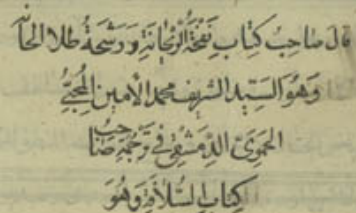 قال صاحب كتاب نفحة الريحانة ورشحة طلا الحانه
وهو السيد الشريف محمد الأمين المحبي
الحموي الدمشقي في ترجمة صاحب
كتاب السلافة وهو